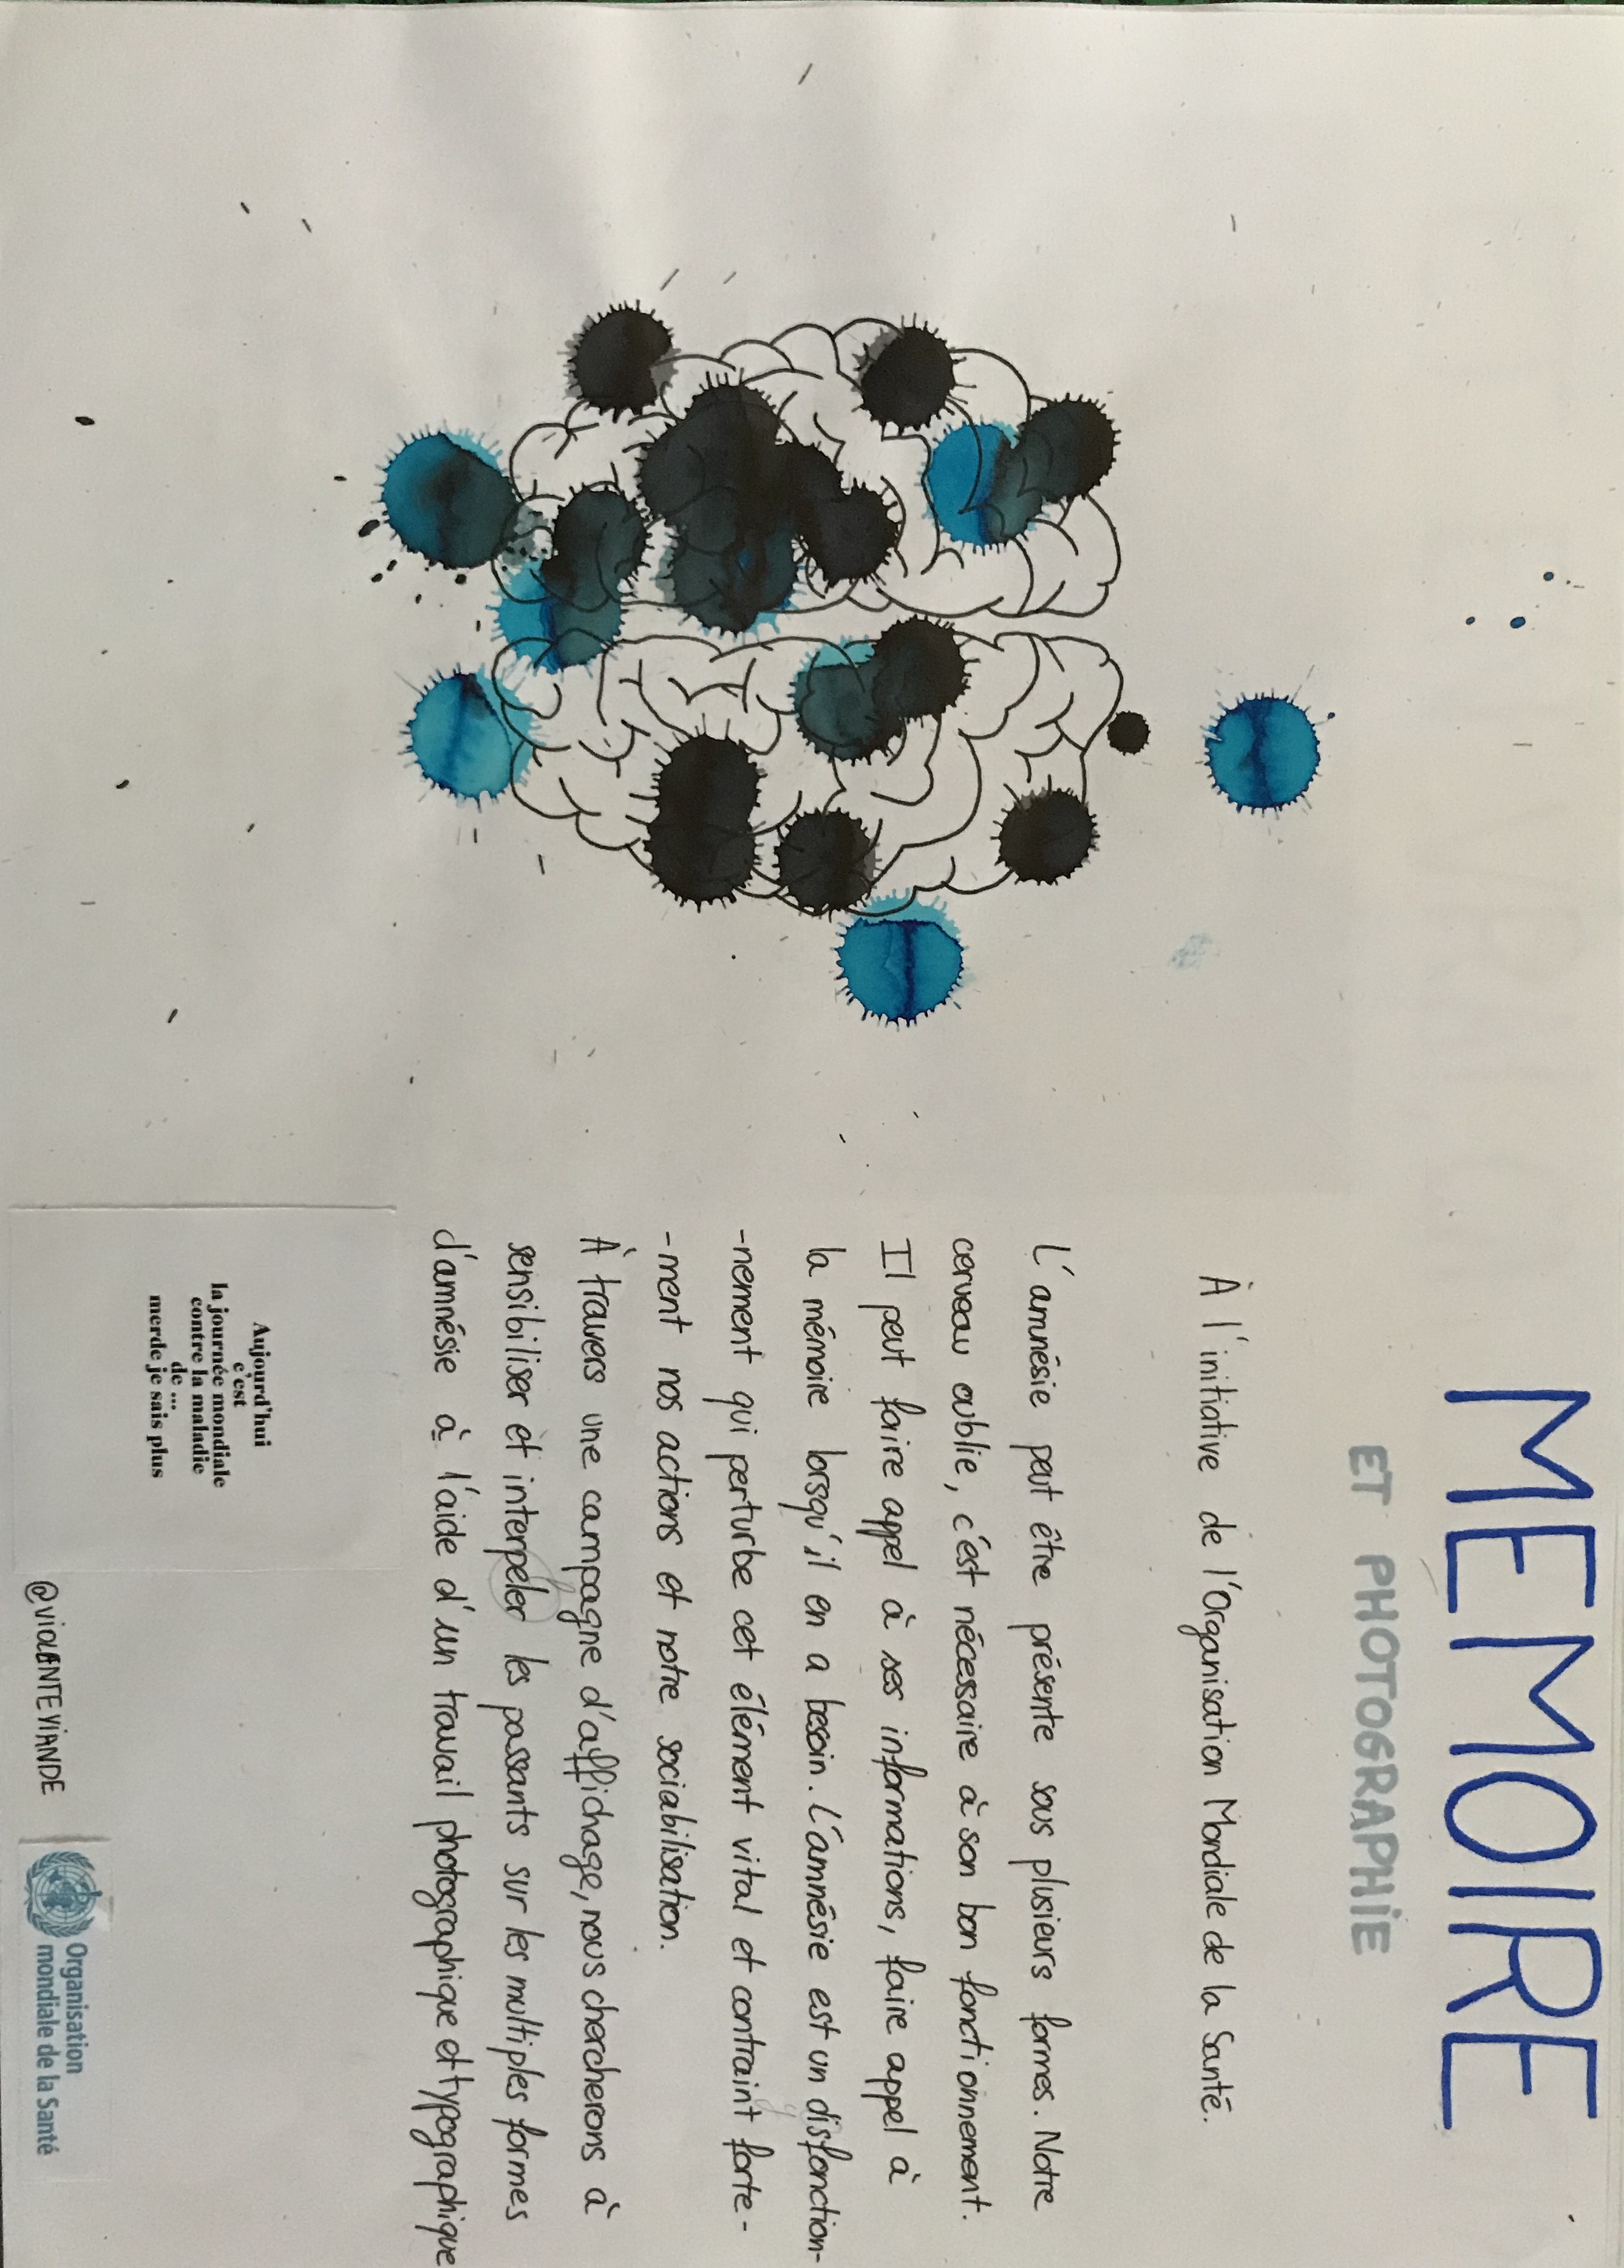 MEMOIRE
ET PHOTOGRAPHIE
À l'initiative de l'Organisation Mondiale de la Santé.
L'amnésie peut être présente sous plusieurs formes. Notre
cerveau oublie, c'est nécessaire à son bon fonctionnement.
Il peut faire appel à ses informations, faire appel à
la mémoire lorsqu'il en a besoin. L'amnésie est un disfonction-
-nement qui perturbe cet élément vital et contraint forte-
-ment nos actions et notre sociabilisation.
À travers une campagne d'affichage, nous chercherons à
sensibiliser et interpeler les passants sur les multiples formes
d'amnésie à l'aide d'un travail photographique et typographique
Aujourd'hui
c'est
la journée mondiale
contre la maladie
de ...
merde je sais plus
@VIOLENTEVIANDE
Organisation
mondiale de la Santé